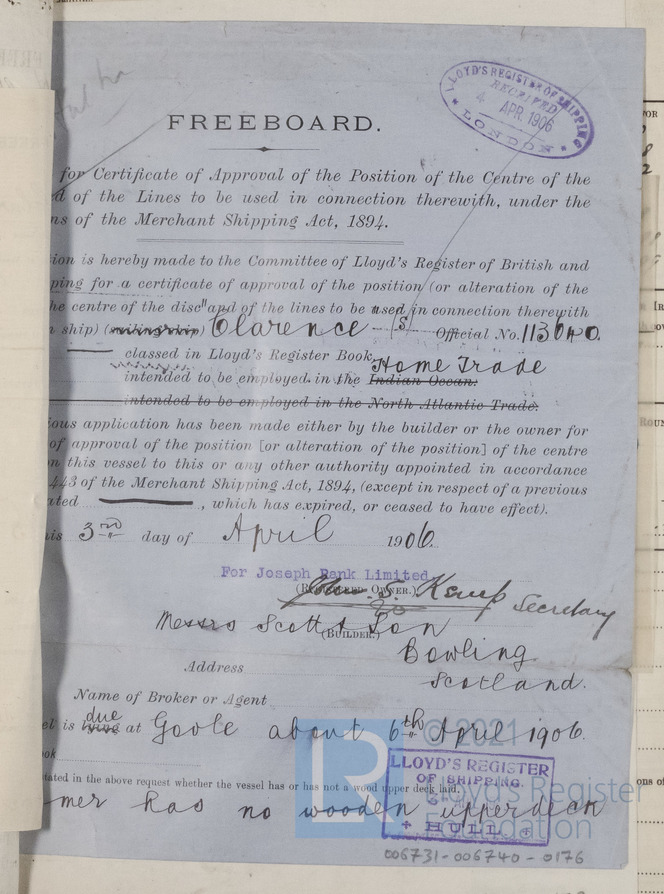 FREEBOARD.
LLOYD'S REGISTER OF SHIPPING
RECEIVED
4 APR. 1906
LONDON
for Certificate of Approval of the Position of the Centre of the
d of the Lines to be used in connection therewith, under the
ns of the Merchant Shipping Act, 1894.
ion is hereby made to the Committee of Lloyd's Register of British and
ping for a certificate of approval of the position (or alteration of the
he centre of the disc and of the lines to be used in connection therewith
ship) (sailing ship) Clarence (S) Official No. 113640.
classed in Lloyd's Register Book,
Home Trade
intended to be employed in the Indian Ocean.
intended to be employed in the North Atlantic Trade.
ious application has been made either by the builder or the owner for
of approval of the position [or alteration of the position] of the centre
on this vessel to this or any other authority appointed in accordance
443 of the Merchant Shipping Act, 1894, (except in respect of a previous
ated , which has expired, or ceased to have effect).
is 3rd day of April 1906.
For Joseph Rank Limited.
(REGISTERED OWNER.)
S. Kemp Secretary
Messrs Scott & Son
(BUILDER.)
Bowling
Address
Scotland.
Name of Broker or Agent
due
el is lying at Goole about 6th April 1906
ook
© 2021
LLOYD'S REGISTER
OF SHIPPING.
HULL
stated in the above request whether the vessel has or has not a wood upper deck laid.
mer has no wooden upper deck
LR Lloyd's Register
Foundation
006731-006740-0176